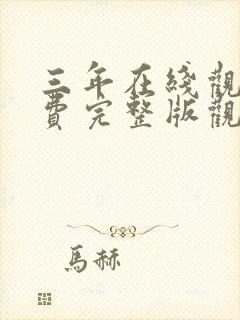 三年在綫觀
費完整版觀
馬赫